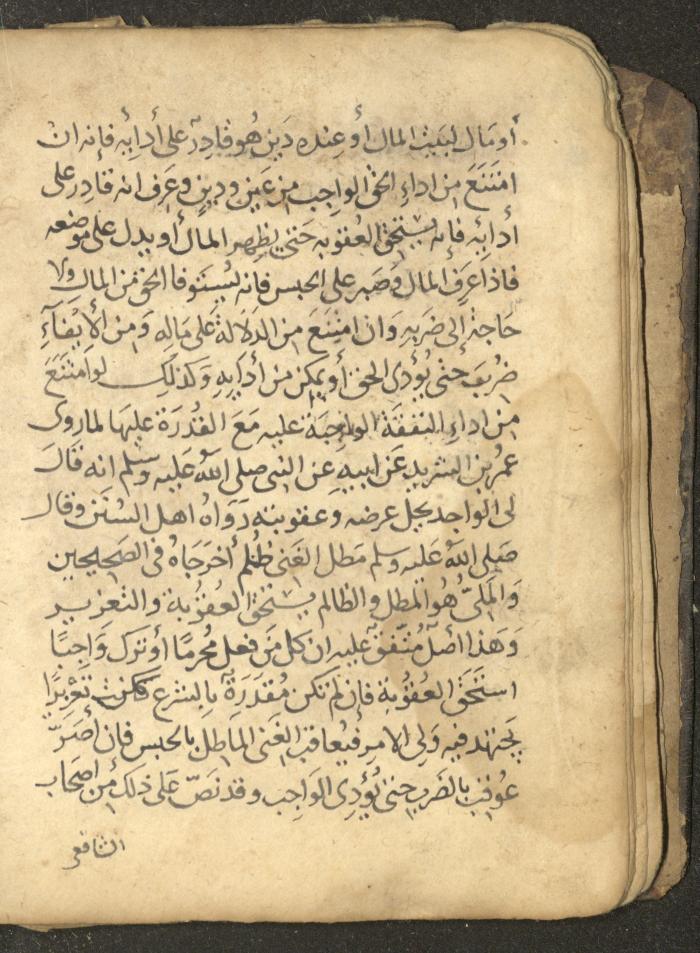 أو مال لبيت المال أو عنده دين هو قادر على أدائه فإنه ان
امتنع من اداء الحق الواجب من عين ودين وعرف انه قادر على
أدائه فإنه يستحق العقوبه حتى يظهر المال أو يدل على موضعه
فاذا عرف المال وصبر على الحبس فانه يستوفا الحق من المال ولا
حاجة إلى ضربه وان امتنع من الدلالة على ماله ومن الأيفآء
ضرب حتى يؤدى الحق أو يمكن من أدايه وكذلك لو امتنع
من اداء النفقة الواجبة عليه مع القدرة عليها لما روى
عمر بن الشريد عن ابيه عن النبى صلى الله عليه وسلم انه قال
لى الواجد يحل عرضه وعقوبته رواه اهل السنن وقال
صلى الله عليه وسلم مطل الغنى ظلم أخرجاه فى الصحيحين
والملىّ هو المطل والظالم يستحق العقوبة والتعزير
وهذا أصل متفق عليه ان كل من فعل محرما أو ترك واجبا
استحق العقوبة فان لم تكن مقدرة بالشرع كانت تعزيرا
يجتهد فيه ولى الامر فيعاقب الغنى الماطل بالحبس فان أصرّ
عوقب بالضرب حتى يؤدى الواجب وقد نصّ على ذلك من اصحاب
الشافعى